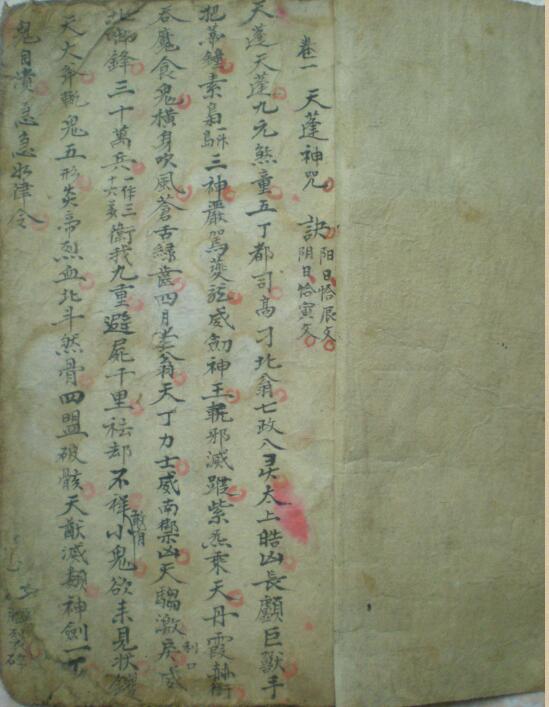 卷一 天蓬神咒 訣 陽日恰辰文 阴日恰寅文
天蓬天蓬九元煞童五丁都司高刁北翁七政八灵太上皓凶長顱巨獸手
把蒂鐘素梟 三神嚴駕夔 威劍神王斬邪滅 紫炁乘天丹霞赫衝
吞魔食鬼橫身吹風蒼舌綠齒四目老翁天丁力士威南禦凶天騶激戾威
北啣鋒三十萬兵 一作三十六萬 衛我九重避屍千里祛却不祥 敢有 小鬼欲来見状
天大斧斬鬼五形炎帝烈血北斗然骨四盟破骸天猷滅類神劍一下
鬼自潰急急如律令